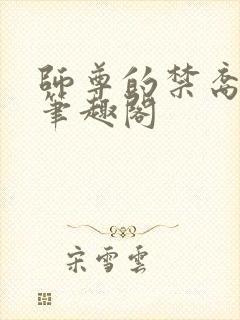 師尊的禁脔
筆趣閣
宋雪雲